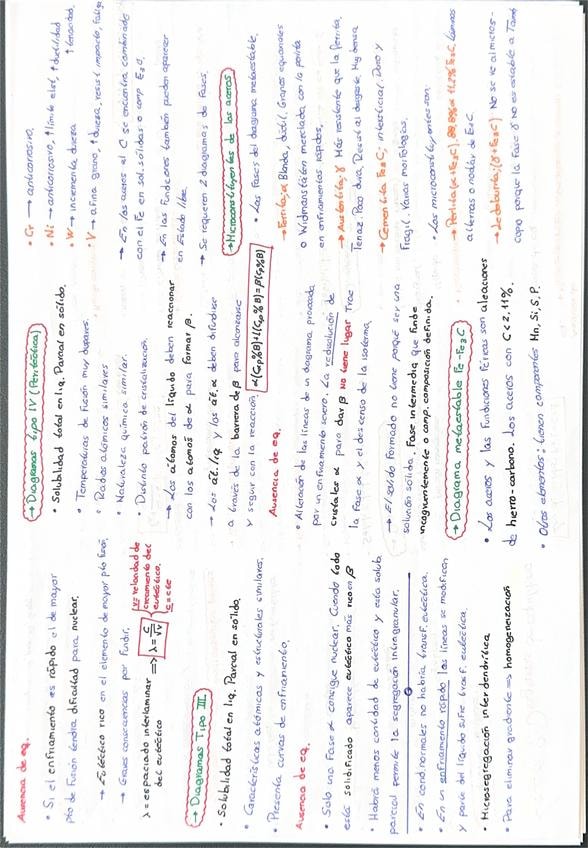 Ausencia de eq.
• Si el enfriamiento es rápido el de mayor
pto de fusión tendrá dificultad para nuclear.
→ Eutéctico rico en el elemento de mayor pto fusión.
→ Graves consecuencias por fundir.
λ = espaciado interlaminar
del eutéctico
⇒ λ = C/√V
V = velocidad de
crecimiento del
eutéctico.
C = cte
→ Diagramas Tipo III.
• Solubilidad total en liq. Parcial en sólido.
• Características atómicas y estructurales similares.
• Presenta curvas de enfriamiento.
Ausencia de eq.
• Solo una Fase α consigue nuclear. Cuando todo
está solidificado aparece eutéctico más rico en β
• Habrá menos cantidad de eutéctico y esta solub.
parcial permite la segregación intragranular.
• En cond. normales no habría transf. eutéctica.
• En un enfriamiento rápido las lineas se modifican,
y parte del liquido sufre transf. eutéctica
• Microsegregación interdendrítica
• Para eliminar gradiente ⇒ homogeneización
→ Diagramas tipo IV (Peritéctica)
• Solubilidad total en liq. Parcial en sólido.
• Temperaturas de fusión muy dispares.
• Radios atómicos similares
• Naturaleza química similar.
• Distinto patrón de cristalización.
→ Los átomos del líquido deben reaccionar
con los átomos de α para formar β.
→ Los át. liq y los át. α deben difundirse
a través de la barrera de β para alcanzarse
y seguir con la reacción α(Cp%B)+l(Cp%B)=β(Cp%B)
Ausencia de eq.
• Alteración de las lineas de un diagrama provocada
por un enfriamiento severo. La redisolución de
cristales α para dar β No tiene lugar. Trae
la Fase α y el descenso de la isoterma
→ El sólido formado no tiene porqué ser una
solución sólida, Fase intermedia que funde
incongruentemente o comp. composición definida.
→ Diagrama metaestable Fe-Fe3C
• Los aceros y las Fundiciones Férricas son aleaciones
de hierro-carbono. Los aceros con C < 2,11%.
• Otros elementos: tienen componentes Mn, Si, S, P.
• Cr → anticorrosivo,
• Ni → anticorrosivo, ↑ límite elást, ↑ ductilidad
• W → incrementa dureza ↑ tenacidad,
• V → afina grano, ↑ dureza, resist impacto, fatiga
→ En los aceros el C se encuentra combinado
con el Fe en sol. sólidas o comp. Fe3C.
→ En las Fundiciones también pueden aparecer
en Estado libre.
→ Se requieren 2 diagramas de Fases.
→ Microconstituyentes de los aceros
• Las Fases del diagrama metaestable,
→ Ferrita, α Blanda, dúctil, Granos equiaxiales
o Widmanstäten mezclada con la perlita
en enfriamientos rápidos,
→ Austenita, γ Más resistente que la Ferrita,
Tenaz, Poco dura, Resist al desgaste, Muy densa
→ Cementita Fe3C; intersticial, Duro y
Frágil Varias morfologías,
• Los microconstituyentes son
→ Perlita (α+Fe3C) 88,8% α 11,2% Fe3C, Láminas
alternas o nodular de Fe3C
→ Ledeburita, (γ + Fe3C) No se ve al micros-
copio porque la Fase γ no es estable a Tamb